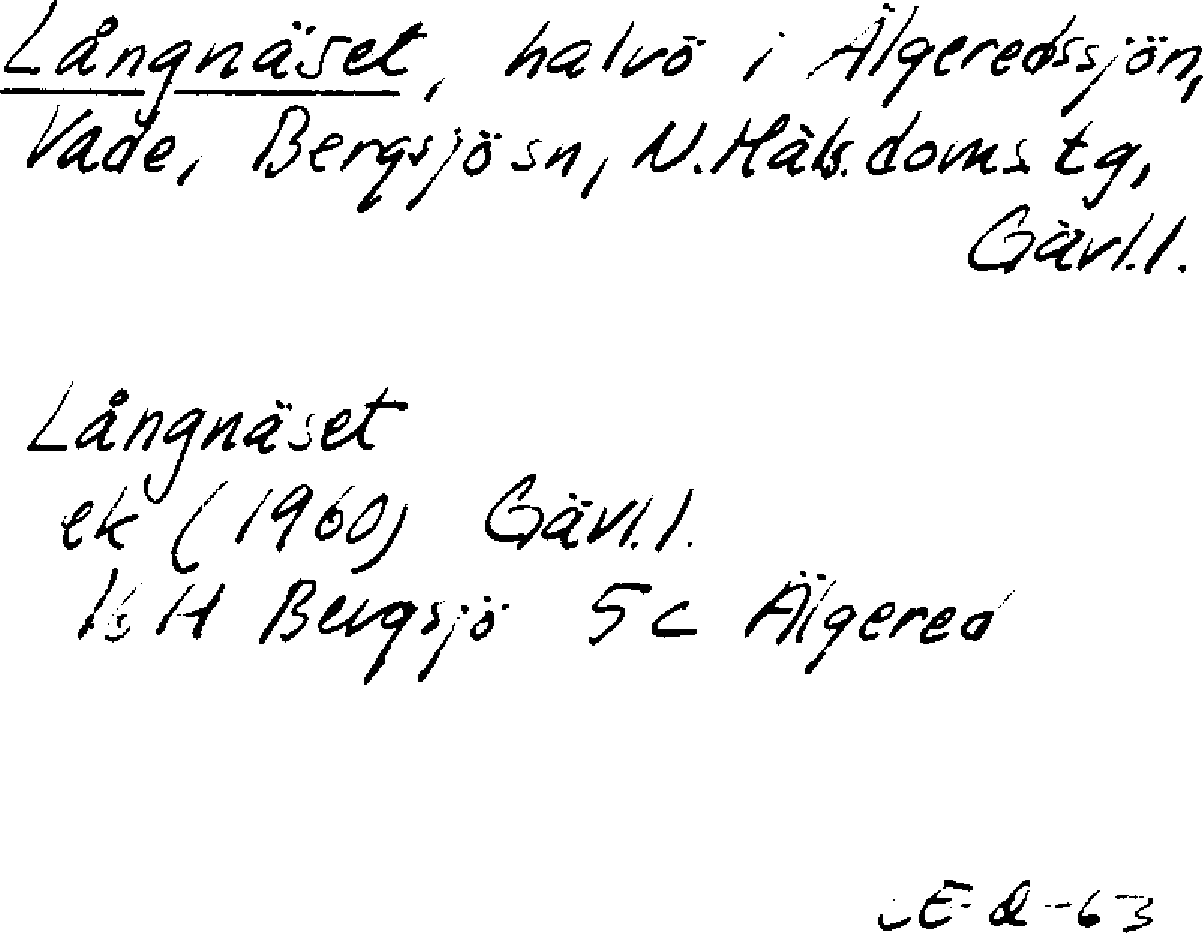 Långnäset, halvö i Älgeredssjön,
Vade, Bergsjö sn, N. Häls. doms tg,
Gävl. l.
Långnäset
ek (1960) Gävl. l.
16 H Bergsjö 5 c Älgered